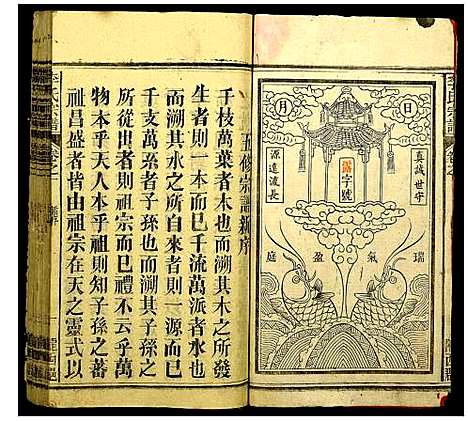 李氏宗譜
卷之一
日
月
真誠世守
源遠流長
字號
瑞氣盈庭
五修宗譜新序
千枝萬葉者木也而溯其木之所發
生者則一本而已千流萬派者水也
而溯其水之所自來者則一源而已
千支萬系者子孫也而溯其子孫之
所從出者則祖宗而已禮不云乎萬
物本乎天人本乎祖則知子孫之蕃
衍昌盛者皆由祖宗在天之靈式以
李氏宗譜
卷之一